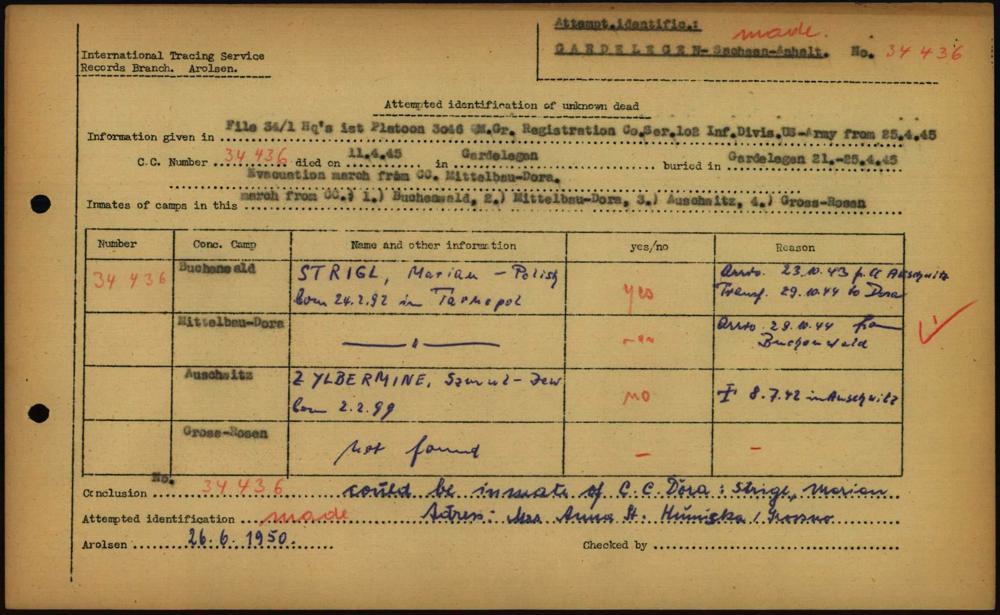 Attempt.identific.: made.
GARDELEGEN-Sachsen-Anhalt. No. 34 436
International Tracing Service
Records Branch. Arolsen.
Attempted identification of unknown dead
Information given in File 34/1 Hq's ist Platoon 3046 QM.Gr. Registration Co.Ser.102 Inf.Divis.US-Army from 25.4.45
C.C. Number 34 436 died on 11.4.45 in Gardelegen buried in Gardelegen 21.-25.4.45
Evacuation march from CC. Mittelbau-Dora.
Inmates of camps in this march from CC.: 1.) Buchenwald, 2.) Mittelbau-Dora, 3.) Auschwitz, 4.) Gross-Rosen
Number Conc. Camp Name and other information yes/no Reason
34 436 Buchenwald STRIGL, Marian - Polish yes Arriv. 23.10.43 f. CC Auschwitz
born 24.2.92 in Tarnopol Transf. 29.10.44 to Dora
Mittelbau-Dora — " — Arriv. 29.10.44 from
Buchenwald
Auschwitz ZYLBERMINE, Szmul - Jew no 8.7.42 in Auschwitz
born 2.2.99
Gross-Rosen not found - -
Conclusion No. 34 436 could be inmate of C.C. Dora: Strigl, Marian
Attempted identification made Adress: Mrs Anna St.
Arolsen 26.6.1950. Checked by